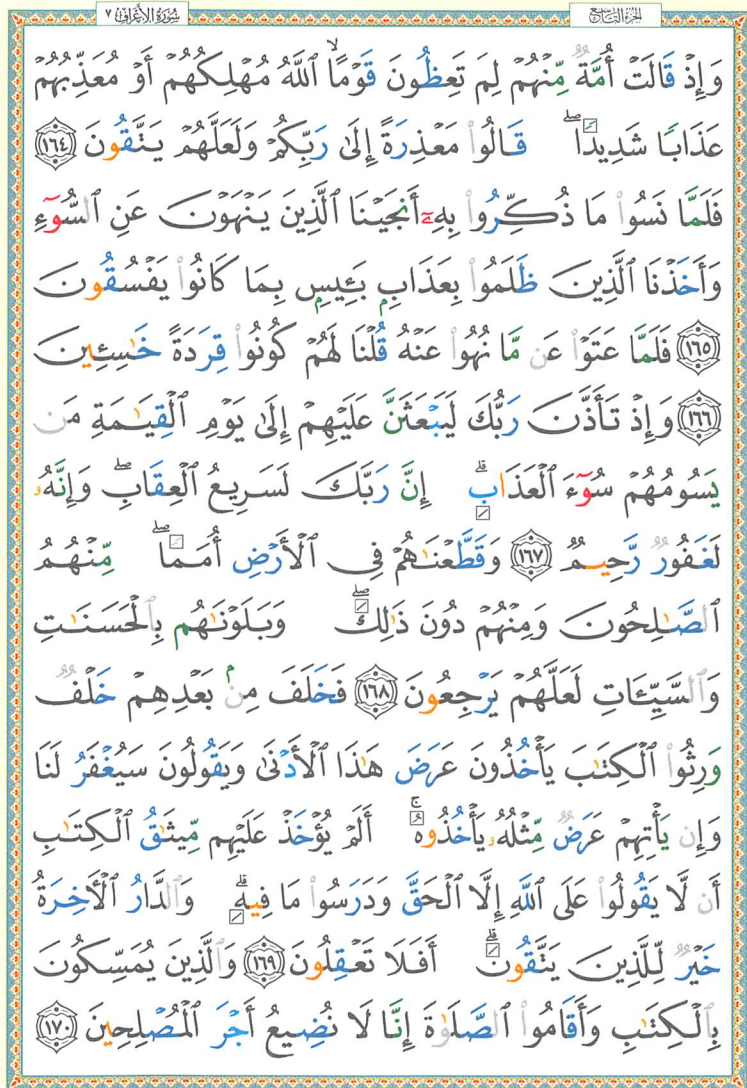 الجزء التاسع سورة الأعراف ٧
وَإِذْ قَالَتْ أُمَّةٌ مِّنْهُمْ لِمَ تَعِظُونَ قَوْمًا ۙ ٱللَّهُ مُهْلِكُهُمْ أَوْ مُعَذِّبُهُمْ
عَذَابًا شَدِيدًا ۖ قَالُوا۟ مَعْذِرَةً إِلَىٰ رَبِّكُمْ وَلَعَلَّهُمْ يَتَّقُونَ ١٦٤
فَلَمَّا نَسُوا۟ مَا ذُكِّرُوا۟ بِهِۦٓ أَنجَيْنَا ٱلَّذِينَ يَنْهَوْنَ عَنِ ٱلسُّوٓءِ
وَأَخَذْنَا ٱلَّذِينَ ظَلَمُوا۟ بِعَذَابٍۭ بَـِٔيسٍۭ بِمَا كَانُوا۟ يَفْسُقُونَ
١٦٥ فَلَمَّا عَتَوْا۟ عَن مَّا نُهُوا۟ عَنْهُ قُلْنَا لَهُمْ كُونُوا۟ قِرَدَةً خَـٰسِـِٔينَ
١٦٦ وَإِذْ تَأَذَّنَ رَبُّكَ لَيَبْعَثَنَّ عَلَيْهِمْ إِلَىٰ يَوْمِ ٱلْقِيَـٰمَةِ مَن
يَسُومُهُمْ سُوٓءَ ٱلْعَذَابِ ۗ إِنَّ رَبَّكَ لَسَرِيعُ ٱلْعِقَابِ ۖ وَإِنَّهُۥ
لَغَفُورٌ رَّحِيمٌ ١٦٧ وَقَطَّعْنَـٰهُمْ فِى ٱلْأَرْضِ أُمَمًا ۖ مِّنْهُمُ
ٱلصَّـٰلِحُونَ وَمِنْهُمْ دُونَ ذَٰلِكَ ۖ وَبَلَوْنَـٰهُم بِٱلْحَسَنَـٰتِ
وَٱلسَّيِّـَٔاتِ لَعَلَّهُمْ يَرْجِعُونَ ١٦٨ فَخَلَفَ مِنۢ بَعْدِهِمْ خَلْفٌ
وَرِثُوا۟ ٱلْكِتَـٰبَ يَأْخُذُونَ عَرَضَ هَـٰذَا ٱلْأَدْنَىٰ وَيَقُولُونَ سَيُغْفَرُ لَنَا
وَإِن يَأْتِهِمْ عَرَضٌ مِّثْلُهُۥ يَأْخُذُوهُ ۚ أَلَمْ يُؤْخَذْ عَلَيْهِم مِّيثَـٰقُ ٱلْكِتَـٰبِ
أَن لَّا يَقُولُوا۟ عَلَى ٱللَّهِ إِلَّا ٱلْحَقَّ وَدَرَسُوا۟ مَا فِيهِ ۗ وَٱلدَّارُ ٱلْـَٔاخِرَةُ
خَيْرٌ لِّلَّذِينَ يَتَّقُونَ ۗ أَفَلَا تَعْقِلُونَ ١٦٩ وَٱلَّذِينَ يُمَسِّكُونَ
بِٱلْكِتَـٰبِ وَأَقَامُوا۟ ٱلصَّلَوٰةَ إِنَّا لَا نُضِيعُ أَجْرَ ٱلْمُصْلِحِينَ ١٧٠